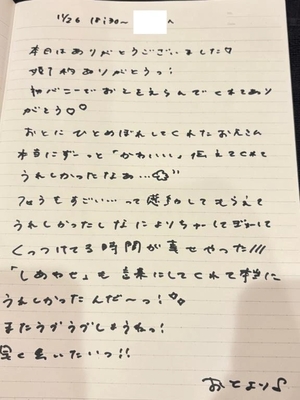 11/26 18:30~
本日はありがとうございました♡
ありがとうっ!
初バニーでおとをえらんでくれてあり
がとう♡
おとにひとめぼれしてくれたお兄さん
本当にずーっと「かわいい」伝えてくれて
うれしかったなぁ…
もすごい…って してもらえて
うれしかったしなによりちゅーしてぎゅーして
くっつけてる時間が幸せやった///
「しあわせ」も言葉にしてくれて本当に
うれしかったんだ〜っ!
またうふうふしようねっ!
早く会いたいっ!!
おとより